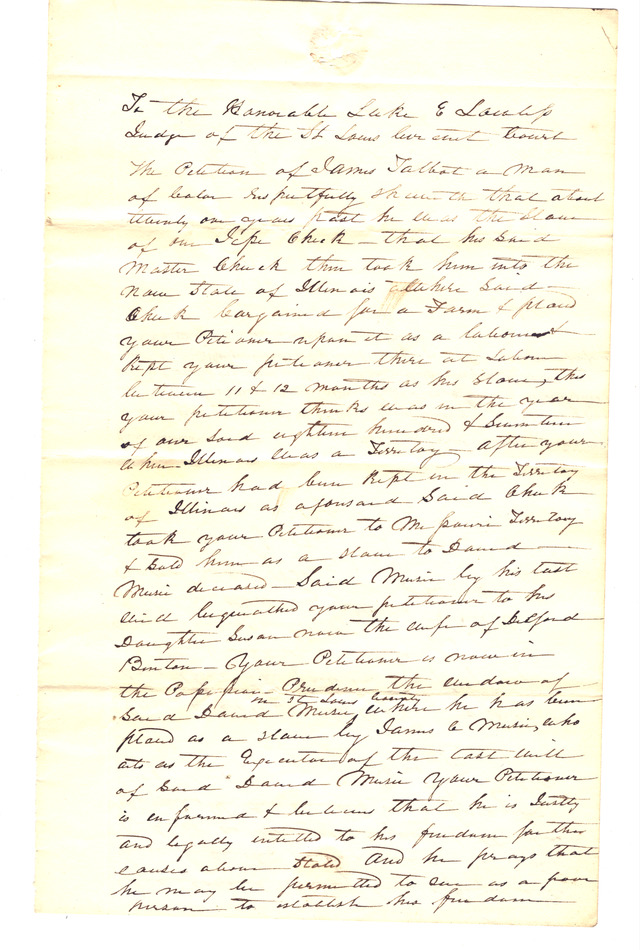 To the Honorable Luke E Lawless
Judge of the St Louis Circuit Court
The Petition of James Talbot a Man
of Color respectfully Sheweth that about
twenty one years past he was the Slave
of one Jesse Cheek – that his Said
Master Cheek then took him into the
now State of Illinois Where Said
Cheek bargained for a Farm & placed
your Petioner upon it as a labourer &
Kept your petitioner there at Labour
between 11 & 12 months as his Slave, this
your petitioner thinks was in the year
of our Lord eighteen hundred &
when Illinois was a Territory – After your
Petitioner had been Kept in the Territory
of Illinois as aforesaid Said Cheek
took your Petitioner to Missouri Territory
& Sold him as a Slave to David
Musick deceased – Said Musick by his last
will bequeathed your petitioner to his
Daughter Susan now the wife of
Benton – Your Petitioner is now in
the Possession Prudence the widow of
Said David Musick in St Louis County where he has been
placed as a Slave by James C Musick, who
acts as the Executor of the last will
of Said David Musick Your Petitioner
is informed & believes that he is Justly
and legally intitled to his freedom for the
causes above Stated And he prays that
he may be permitted to sue as a poor
person to establish his freedom